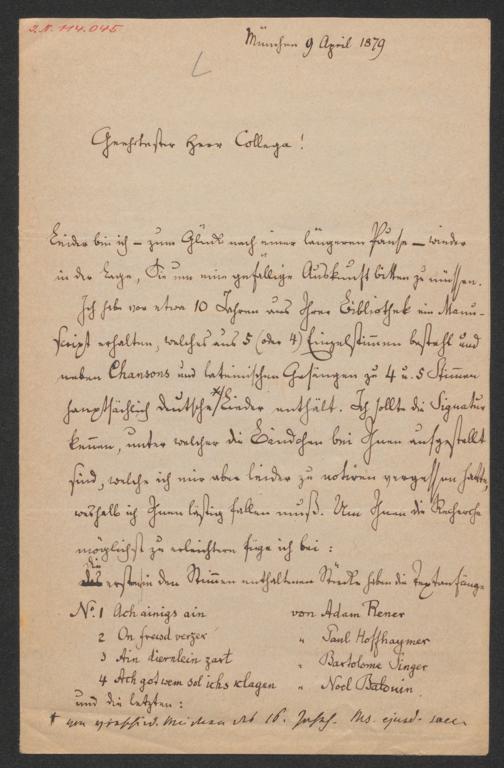 I.N. 114.045
München 9 April 1879
Geehrtester Herr Collega!
Leider bin ich – zum Glück nach einer längeren Pause – wieder
in der Lage, Sie um eine gefällige Auskunft bitten zu müssen.
Ich habe vor etwa 10 Jahren aus Ihrer Bibliothek ein Manu-
script erhalten, welches aus 5 (oder 4) Einzelstimmen besteht und
neben Chansons und lateinischen Gesängen zu 4 u. 5 Stimmen
hauptsächlich deutsche Lieder enthält. Ich sollte die Signatur
kennen, unter welcher die Bändchen bei Ihnen aufgestellt
sind, welche ich mir aber leider zu notiren vergessen hatte,
weshalb ich Ihnen lästig fallen muß. Um Ihnen die Recherche
möglichst zu erleichtern füge ich bei:
die ersten in den Stimmen enthaltenen Stücke haben die Textanfänge
No. 1 Ach ainigs ain von Adam Rener
2 On freud verzer " Paul Hoffhaymer
3 Ain diernlein zart " Bartolome Singer
4 Ach got wem sol ichs klagen " Noel Balduin.
und die letzten:
von verschied. des 16. Ms. ejusd. saec.